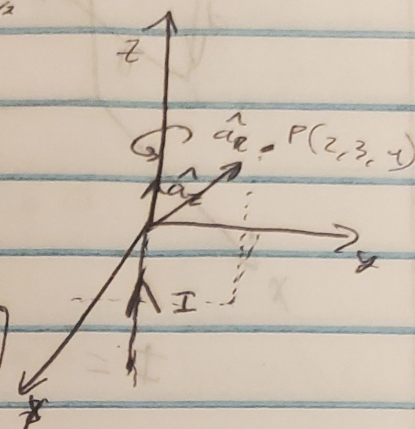 z
â_R P(2,3,4)
â_z
y
I
x